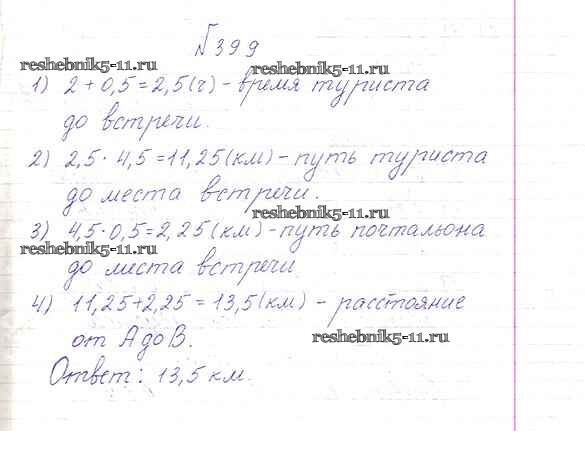 №399
reshebnik5-11.ru
reshebnik5-11.ru
1) 2 + 0,5 = 2,5 (ч) - время туриста
до встречи.
2) 2,5 · 4,5 = 11,25 (км) - путь туриста
до места встречи.
reshebnik5-11.ru
3) 4,5 · 0,5 = 2,25 (км) - путь почтальона
reshebnik5-11.ru
до места встречи.
4) 11,25 + 2,25 = 13,5 (км) - расстояние
от А до В.
reshebnik5-11.ru
Ответ: 13,5 км.